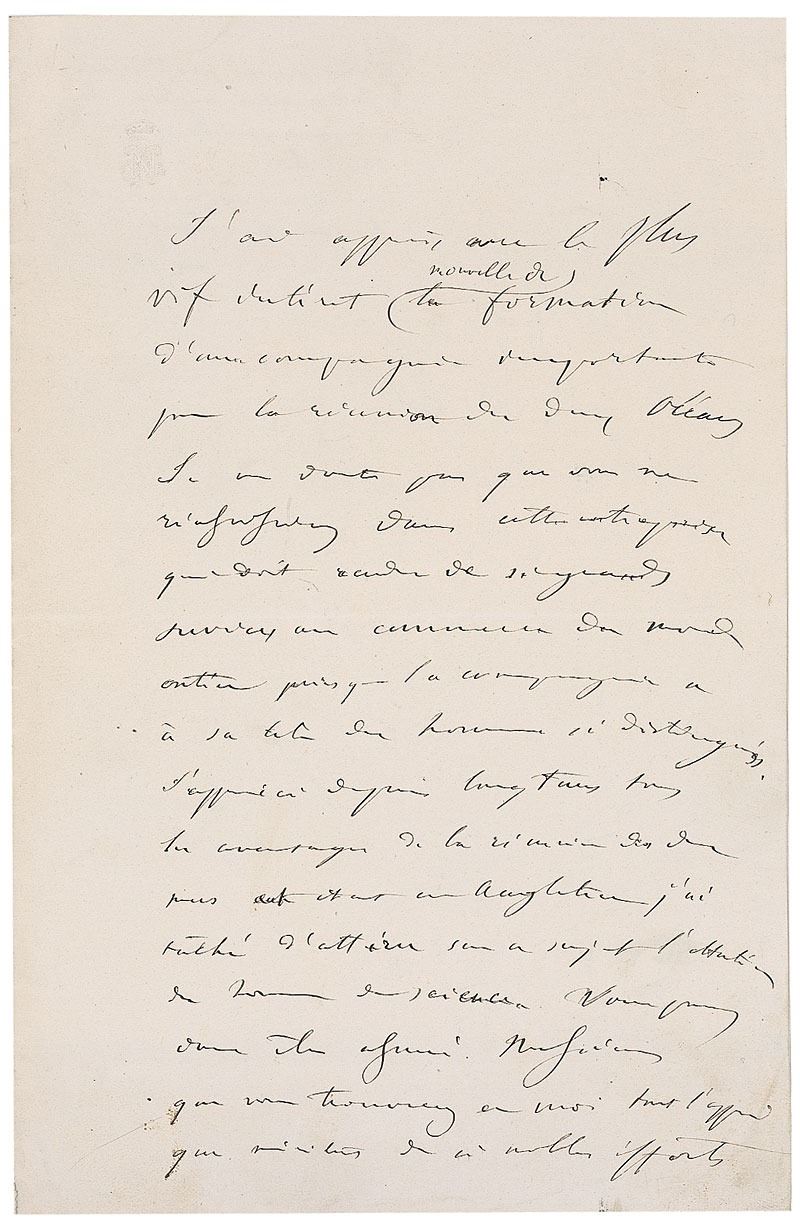 J'ai appris avec le plus
nouvelle de
vif intérêt la formation
d'une compagnie importante
pour la réunion des deux Océans
Je ne doute pas que vous ne
réussissiez dans cette entreprise
qui doit rendre de si grands
services au commerce du monde
entier puisque la compagnie a
à sa tête des hommes si distingués.
J'apprécie depuis longtems tous
les avantages de la réunion des deux
mers et étant en Angleterre j'ai
tâché d'attirer sur ce sujet l'attention
des hommes de science. Vous pouvez
donc être assuré. Messieurs
que vous trouverez en moi tout l'appui
que méritent de si nobles efforts